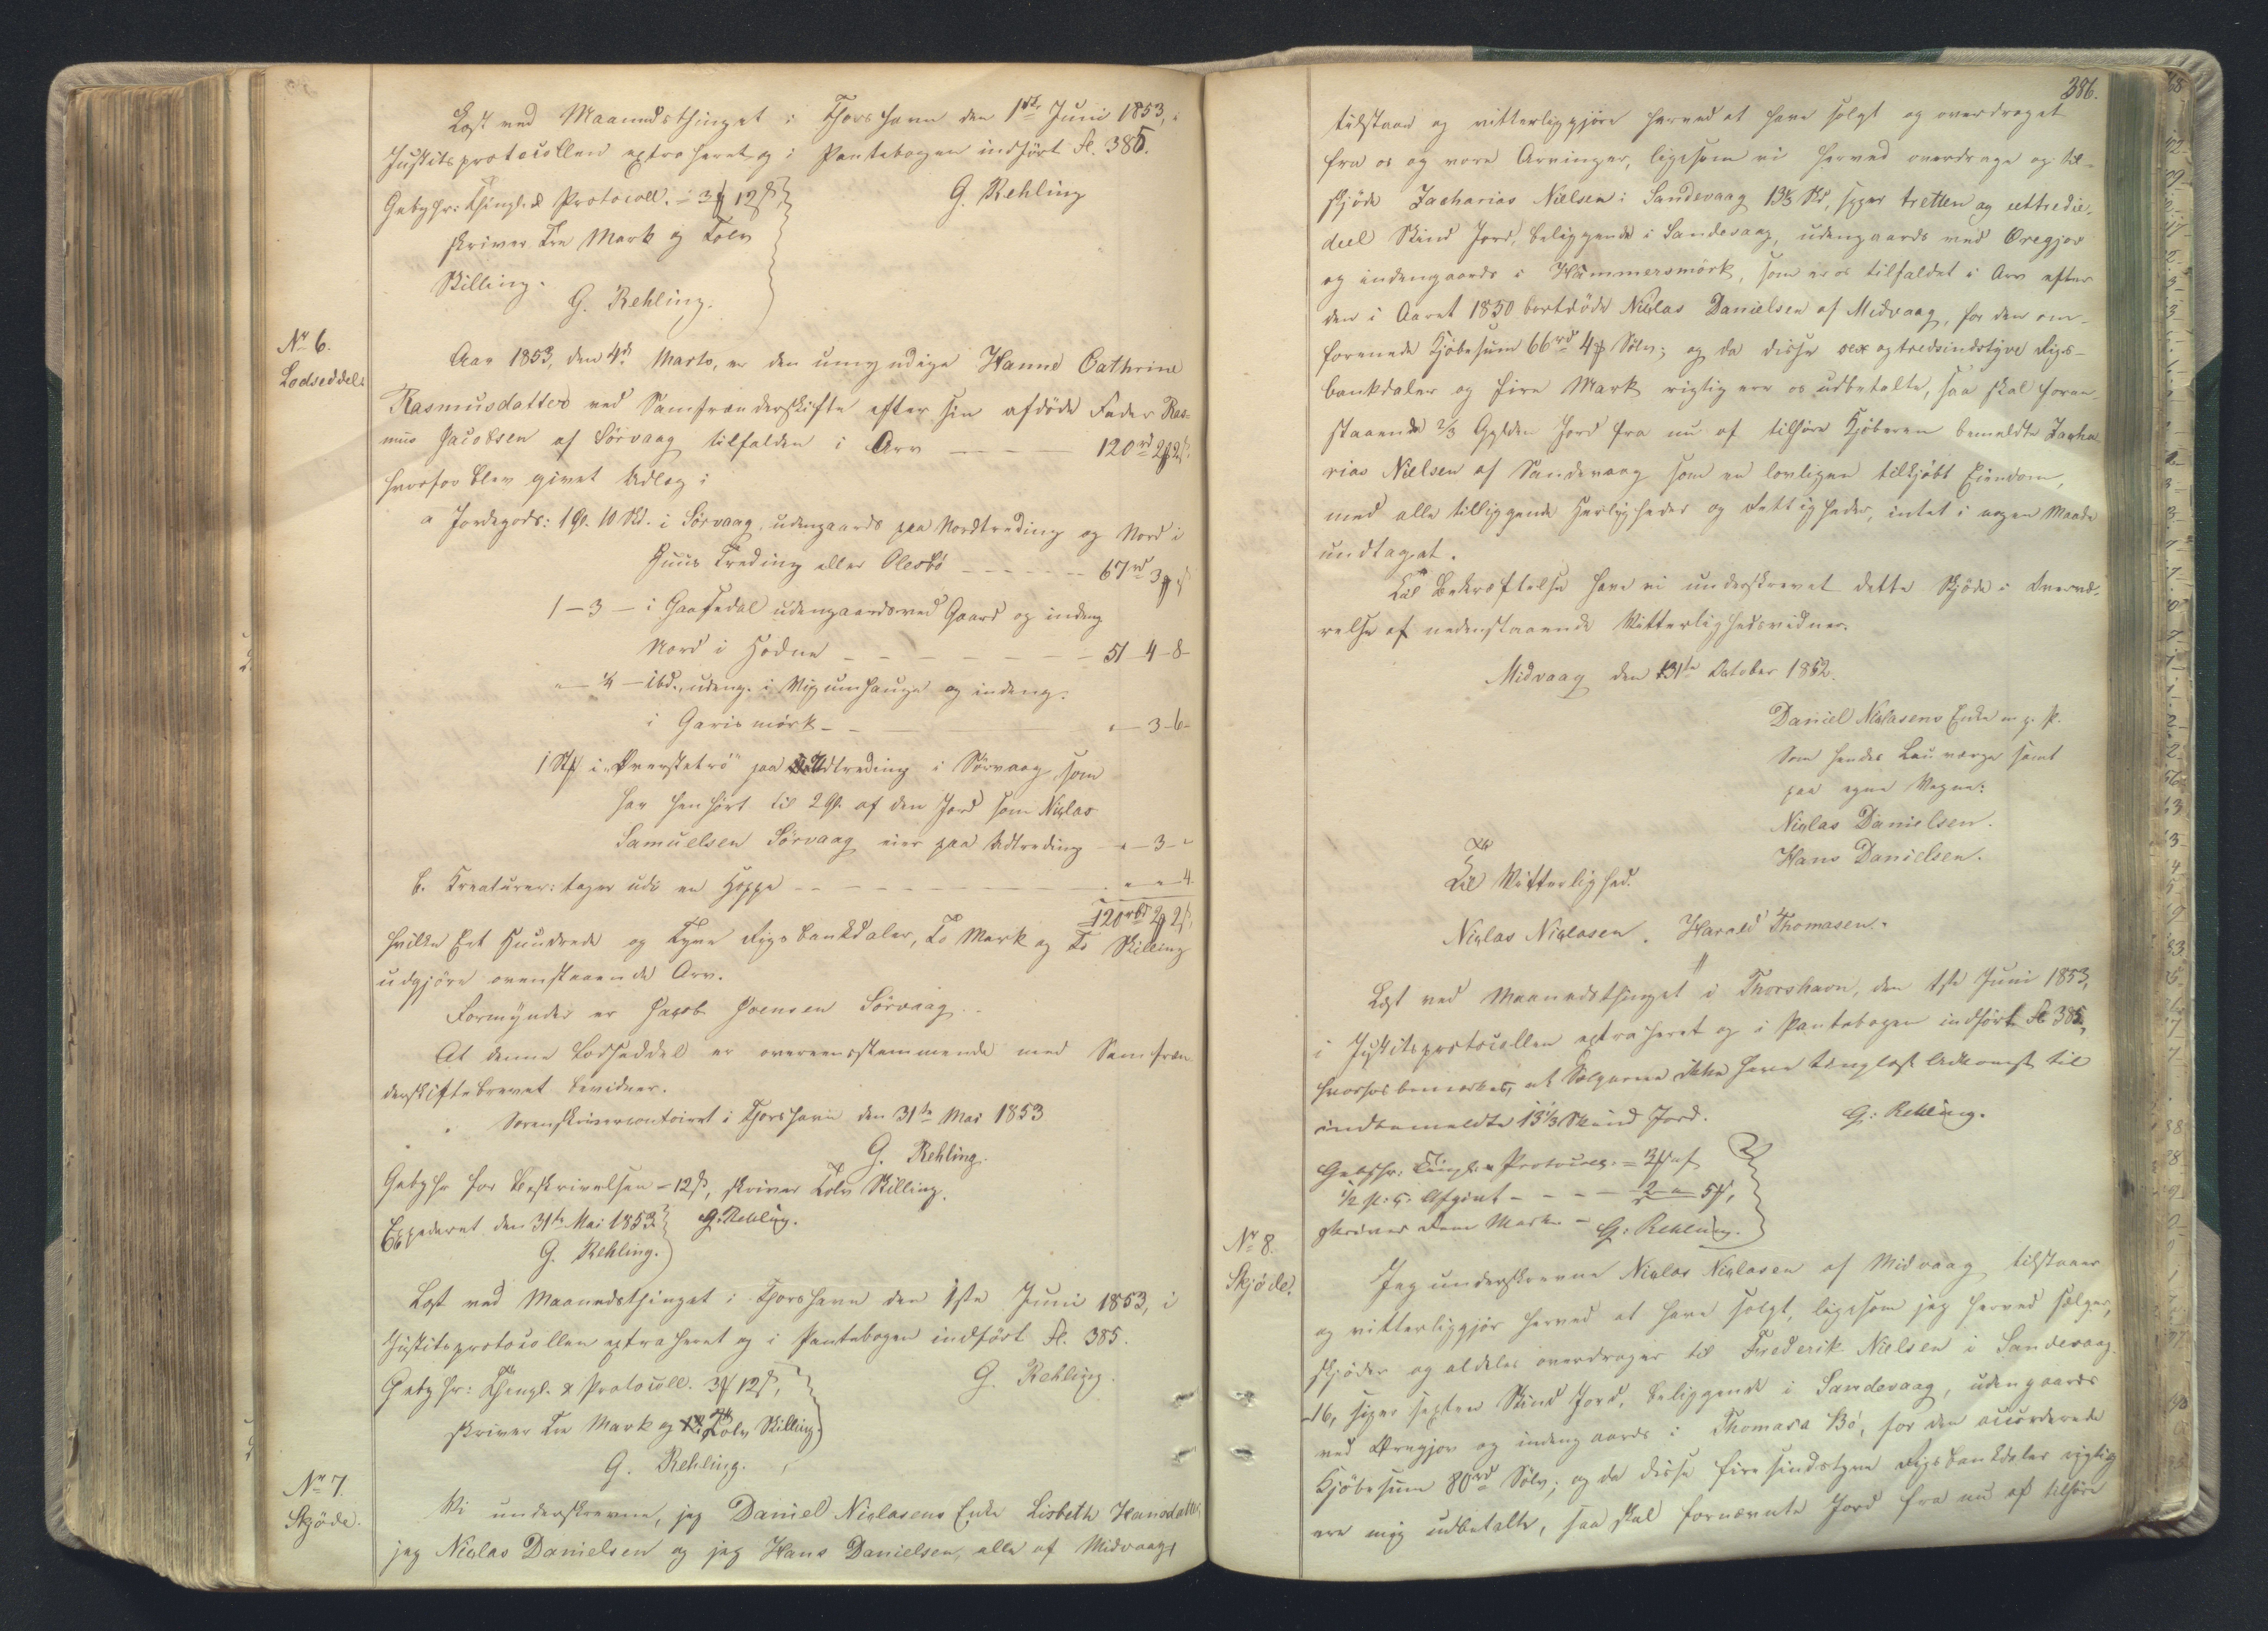 Læst ved Maanedsthinget i Thorshavn den 1ste Juni 1853, i
Justitsprotocollen extraheret og i Pantebogen indført fl. 385.
G. Rehling
Gebyhr: Thingl. & Protocoll. = 3 ℳ 12 ß,
skriver Tre Mark og Tolv
Skilling.
G. Rehling.
No 6.
Lodseddel.
Aar 1853, den 4de Marts, er den umyndige Hanne Cathrine
Rasmusdatter ved Samfrænderskifte efter sin afdøde Fader Ras-
mus Jacobsen af Sörvaag tilfalden i Arv — — — 120 rd 2 ℳ 2 ß
hvorfor blev givet Udlæg i
a Jordegods: 1 Gl. 10 Skd. i Sörvaag, udengaards paa Nordtreding og Nord i
Huus Treding eller Olesbö — — — 67 rd 3 ℳ " ß
1 — 3 — i Gaasedal udengaards ved Gaard og indeng.
Nord i Hodne — — — 51 - 4 - 8 -
" — ¼ — ibd., udeng. i Vigumhauge og indeng.
i Garismörk — — — " — 3 - 6 -
i "Överstetrö" paa Udtreding i Sörvaag, som
har henhørt til 2 Gl. af den Jord som Niclas
Samuelsen Sörvaag eier paa Udtreding — " — 3 - "
b. Kreaturer: tager udi en Hoppe — — — " — " — 4.
120 rbd 2 ℳ 2 ß,
hvilke Eet Hundrede og Tyve Rigsbankdaler, To Mark og To Skilling
udgjøre ovenstaaende Arv.
Formynder er Jacob Joensen Sörvaag.
At denne Lodseddel er overeensstemmende med Samfræn-
derskiftebrevet bevidner.
Sorenskrivercontoiret i Thorshavn den 31te Mai 1853
G. Rehling.
Gebyhr for Beskrivelsen = 12 ß, skriver Tolv Skilling.
G. Rehling.
Expederet den 31te Mai 1853.
G. Rehling.
Læst ved Maanedsthinget i Thorshavn den 1ste Juni 1853, i
Justitsprotocollen extraheret og i Pantebogen indført fl. 385.
G. Rehling.
Gebyhr: Thingl. & Protocoll. 3 ℳ 12 ß,
skriver Tre Mark og Tolv Skilling.
G. Rehling.
No 7.
Skjöde.
Vi underskrevne, jeg Daniel Niclasens Enke Lisbeth Hansdatter,
jeg Niclas Danielsen og jeg Hans Danielsen, alle af Midvaag,
386.
tilstaae og vitterliggjöre herved at have solgt og overdraget
fra os og vore Arvinger, ligesom vi herved overdrage og til-
skjöde Zacharias Nielsen i Sandevaag 13⅓ Skd, siger tretten og eettredie-
deel Skind Jord, beliggende i Sandevaag, udengaards ved Öregjov
og indengaards i Hammersmörk, som er os tilfaldet i Arv efter
den i Aaret 1850 bortdöde Niclas Danielsen af Midvaag, for den om-
forenede Kjöbesum 66 rd 4 ℳ Sölv; og da disse sex og tredsindstyve Rigs-
bankdaler og fire Mark rigtig ere os udbetalte, saa skal foran-
staaende ⅔ Gylden Jord fra nu af tilhöre Kjöberen bemeldte Zacha-
rias Nielsen af Sandevaag som en lovligen tilkjöbt Eiendom,
med alle tilliggende Herligheder og Rettigheder, intet i nogen Maade
undtaget.
Til Bekræftelse have vi underskrevet dette Skjöde i Overvæ-
relse af nedenstaaende Vitterlighedsvidner.
Midvaag den 31te October 1852.
Daniel Niclasens Enke m. p. P.
Som hendes Lauværge samt
paa egne Vegne:
Niclas Danielsen.
Hans Danielsen.
Til Vitterlighed.
Niclas Niclasen. Harald Thomasen.
Læst ved Maanedsthinget i Thorshavn, den 1ste Juni 1853,
i Justitsprotocollen extraheret og i Pantebogen indført fl 385,
hvorhos bemærkes, at Sælgerne ikke have tinglæst Adkomst til
indbemeldte 13⅓ Skind Jord.
G. Rehling.
Gebyhr: Tingl. & Protocoll. = 3 ℳ " ß
½ p. c. Afgivt — — — 2 — " — 5 ℳ,
skriver Fem Mark. — G. Rehling.
No 8.
Skjöde.
Jeg underskrevne Niclas Niclasen af Midvaag tilstaaer
og vitterliggjör herved at have solgt, ligesom jeg herved sælger,
skjöder og aldeles overdrager til Frederik Nielsen i Sandevaag
16, siger sexten Skind Jord, beliggende i Sandevaag, udengaards
ved Öregjov og indengaards i Thomasa Bö, for den accorderede
Kjöbesum 80 rd Sölv; og da disse firesindstyve Rigsbankdaler rigtig
ere mig udbetalte, saa skal fornævnte Jord fra nu af tilhöre